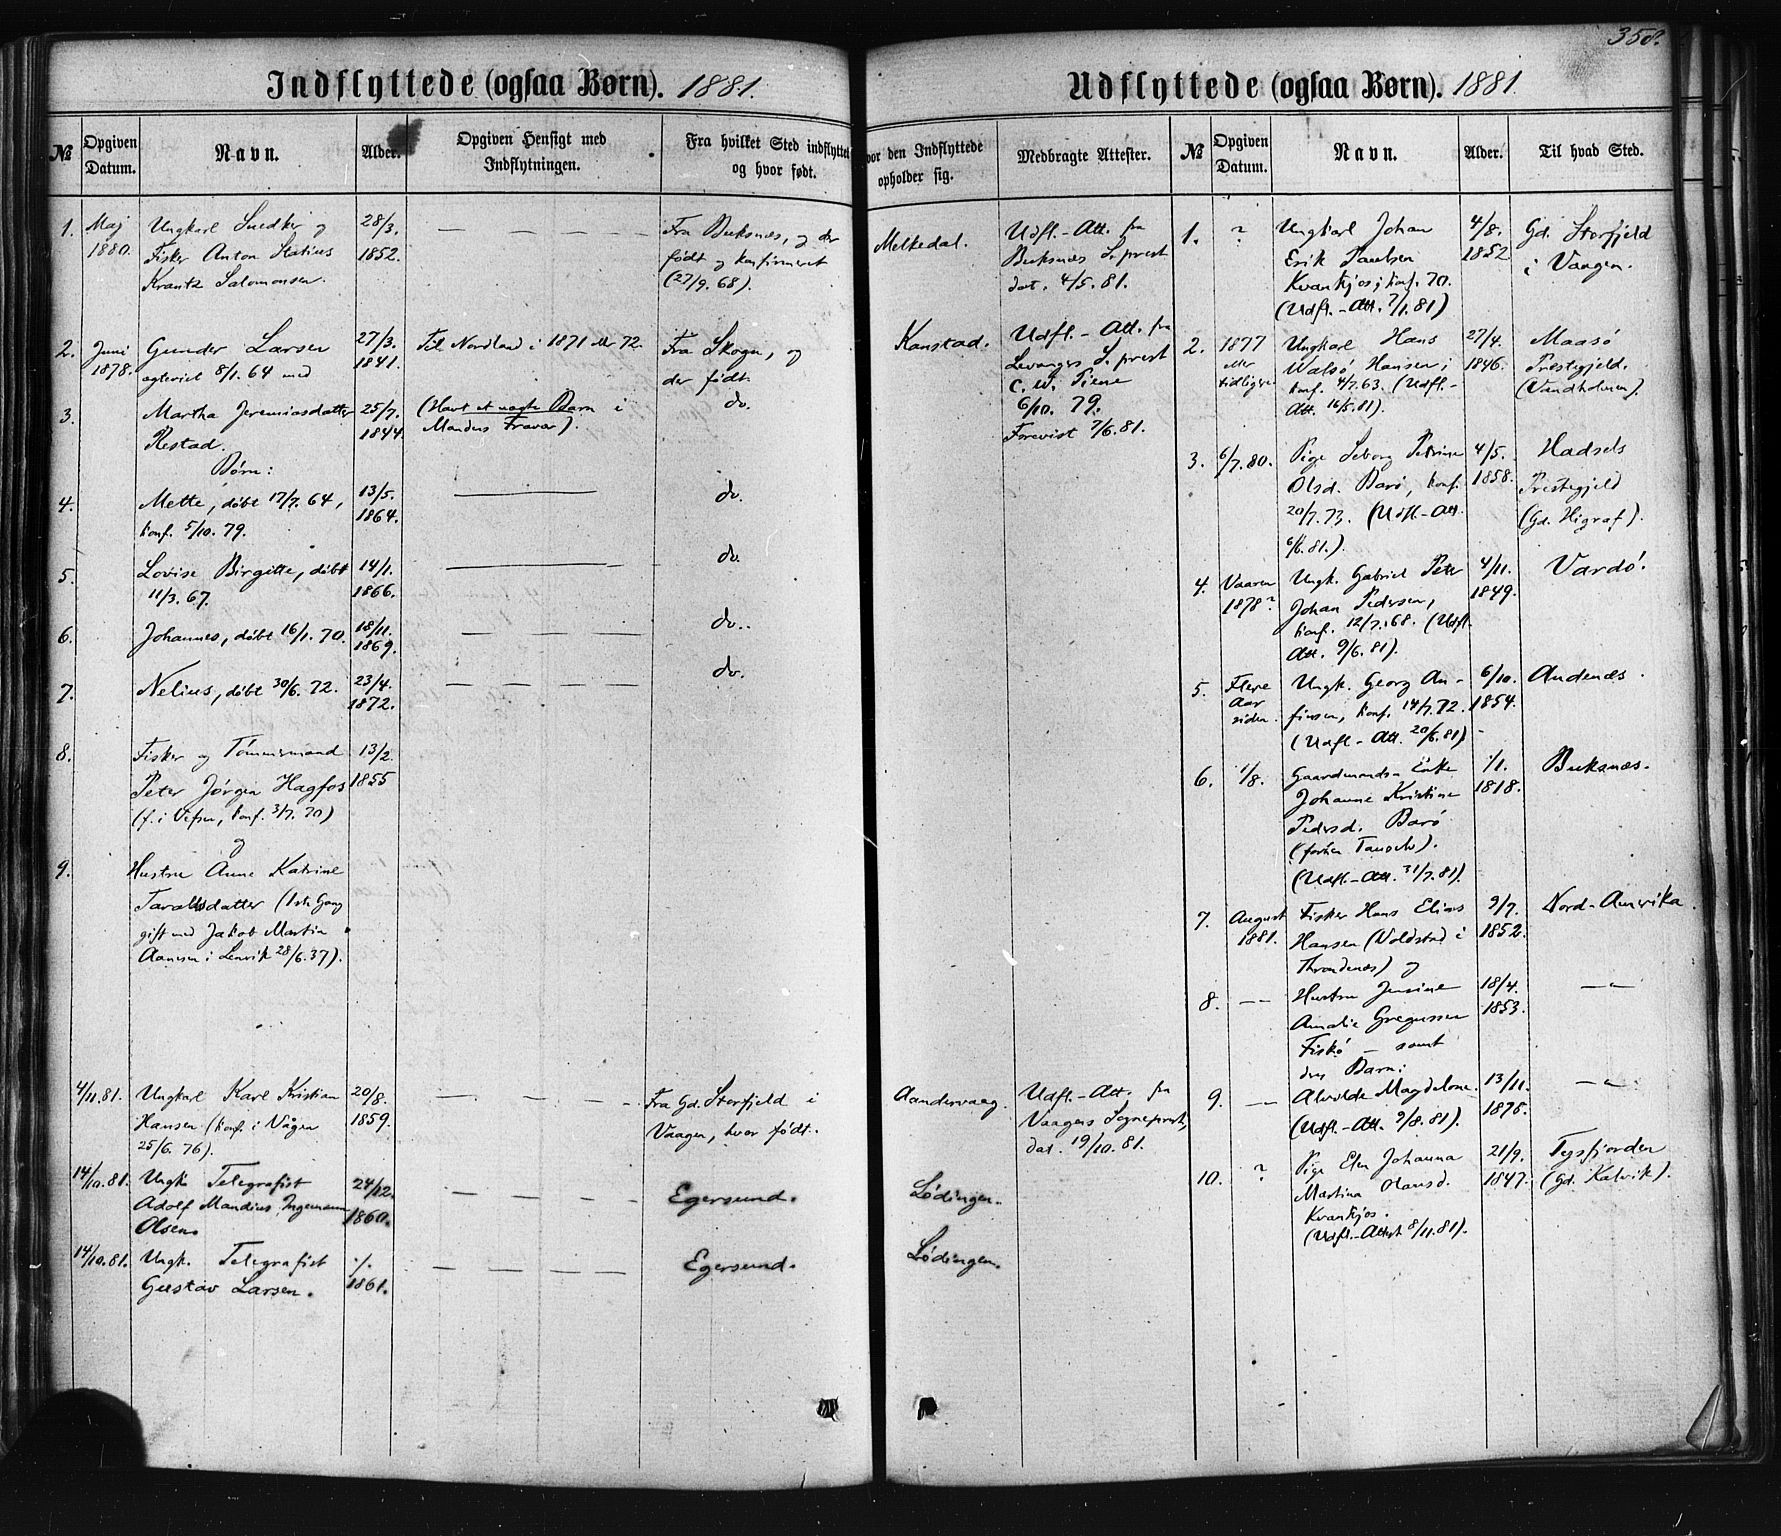 358.
Indflyttede (ogsaa Børn). 1881.
№
Opgiven Datum.
Navn.
Alder.
Opgiven Hensigt med Indflytningen.
Fra hvilket Sted indflyttet og hvor født.
vor den Indflyttede opholder sig.
Medbragte Attester.
1. Maj 1880. Ungkarl Snedker og 28/3. 1852. — — — — Fra Buksnæs, og der Melkedal. Udfl.-Att. fra
Fisker Anton Statius født og konfirmeret Buksnæs S.prest
Krantz Salomonsen. (27/9. 68). dat. 4/5. 81.
2. Juni 1878. Gunder Larsen 27/3. 1841. Til Nordland i 1871 ell. 72. Fra Skogn, og Kanstad. Udfl.-Att. fra
ægteviet 8/1. 64 med der født. Levanger S.prest
3 Martha Jeremiasdatter 25/7. 1844. (Havt et uægte Barn i do. C. W. Piene
Restad. Mandens Fravær). 6/10. 79.
Forevist 7/6. 81.
Børn:
4. Mette, døbt 17/7. 64, 13/5. 1864. — do.
konf. 5/10. 79.
5. Lovise Birgitte, døbt 14/1. 1866. — do.
11/3. 67.
6. Johannes, døbt 16/1. 70. 18/11. 1869. — — — — do.
7. Nelius, døbt 30/6. 72. 23/4. 1872. — — — — do.
8. Fisker og Tømmermand 13/2. 1855
Peter Jørgen Hagfos
(f. i Vefsn, konf. 3/7. 70)
og
9. Hustru Anne Katrine
Taraldsdatter (1ste Gang
gift med Jakob Martin
Aansen i Lenvik 28/6. 37).
4/11. 81. Ungkarl Karl Kristian 20/8. 1859. — — — — Fra Gd. Storfjeld i Aandervaag. Udfl.-Att. fra
Hansen (konf. i Vågen Vaagen, hvor født. Vaagens Sogneprest,
25/6. 76). dat. 19/10. 81.
14/10. 81. Ungk. Telegrafist 24/12. 1860. — — — — Egersund. Lødingen.
Adolf Mandius Ingemann
Olsen.
14/10. 81. Ungk. Telegrafist ./. 1861. — — — — Egersund. Lødingen.
Gustav Larsen.
Udflyttede (ogsaa Børn). 1881.
№
Opgiven Datum.
Navn.
Alder.
Til hvad Sted.
1. ? Ungkarl Johan 4/8. 1852 Gd. Storfjeld
Erik Paulsen i Vaagen.
Kvantkjos; konf. 70.
(Udfl.-Att. 7/1. 81)
2. 1877 eller tidligere Ungkarl Hans 27/4. 1846. Maasø
Watsø Hansen; Prestegjeld.
konf. 4/7. 63. (Udfl.- (Vandholmen).
Att. 16/5. 81).
3. 6/7. 80. Pige Seborg Petrine 4/5. 1858. Hadsels
Olsd. Barø, konf. Prestegjeld
20/7. 73. (Udfl.-Att. (Gd. Higraf).
6/6. 81.).
4. Vaaren 1878? Ungk. Gabriel Peter 4/11. 1849. Vardø.
Johan Pedersen,
konf. 12/7. 68. (Udfl.
Att. 9/6. 81).
5. Flere Aar siden. Ungk. Georg An- 6/10. 1854. Andenæs.
finsen, konf. 14/7. 72.
(Udfl.-Att. 20/6. 81)
6. 1/8. Gaardmands-Enke 1/1. 1818. Buksnæs.
Johanne Kristine
Pedersd. Barø
(før i en
(Udfl.-Att. 31/7. 81).
7. August 1881. Fisker Hans Elias 9/7. 1852. Nord-Amerika
Hansen (Voldstad i
Throndenæs) og
8. —„— Hustru Jensine 18/4. 1853. —„—
Amalie Gregussen
Fiskø — samt
deres Barn:
9. —„— Alvilde Magdalone. 13/11. 1878. —„—
(Udfl.-Att. 9/8. 81).
10. ? Pige Elen Johanna 21/9. 1847. Tysfjorden
Martina Olausd. (Gd. Kalvik).
Kvantkjos.
(Udfl.-Attest 8/11. 81).